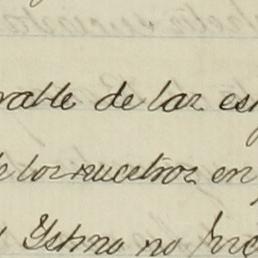 rable de las es
e los nuestros en
Istmo no